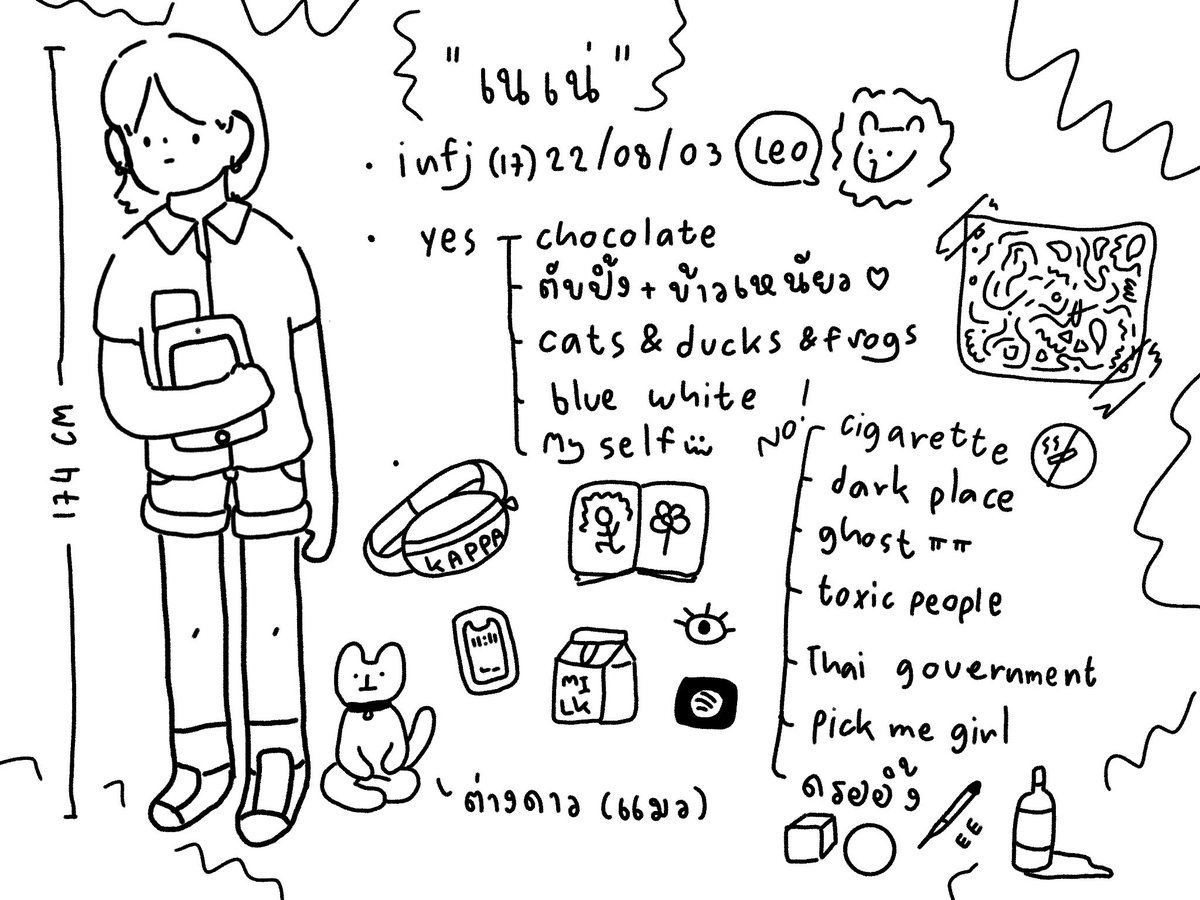 "เนเน่"
infj (17) 22/08/03
Leo
yes
chocolate
ตับปิ้ง + ข้าวเหนียว ♡
cats & ducks & frogs
blue white
my self
NO!
cigarette
dark place
ghost ㅠㅠ
toxic people
Thai government
pick me girl
174 CM
KAPPA
MI
LK
ต่างดาว (แมว)